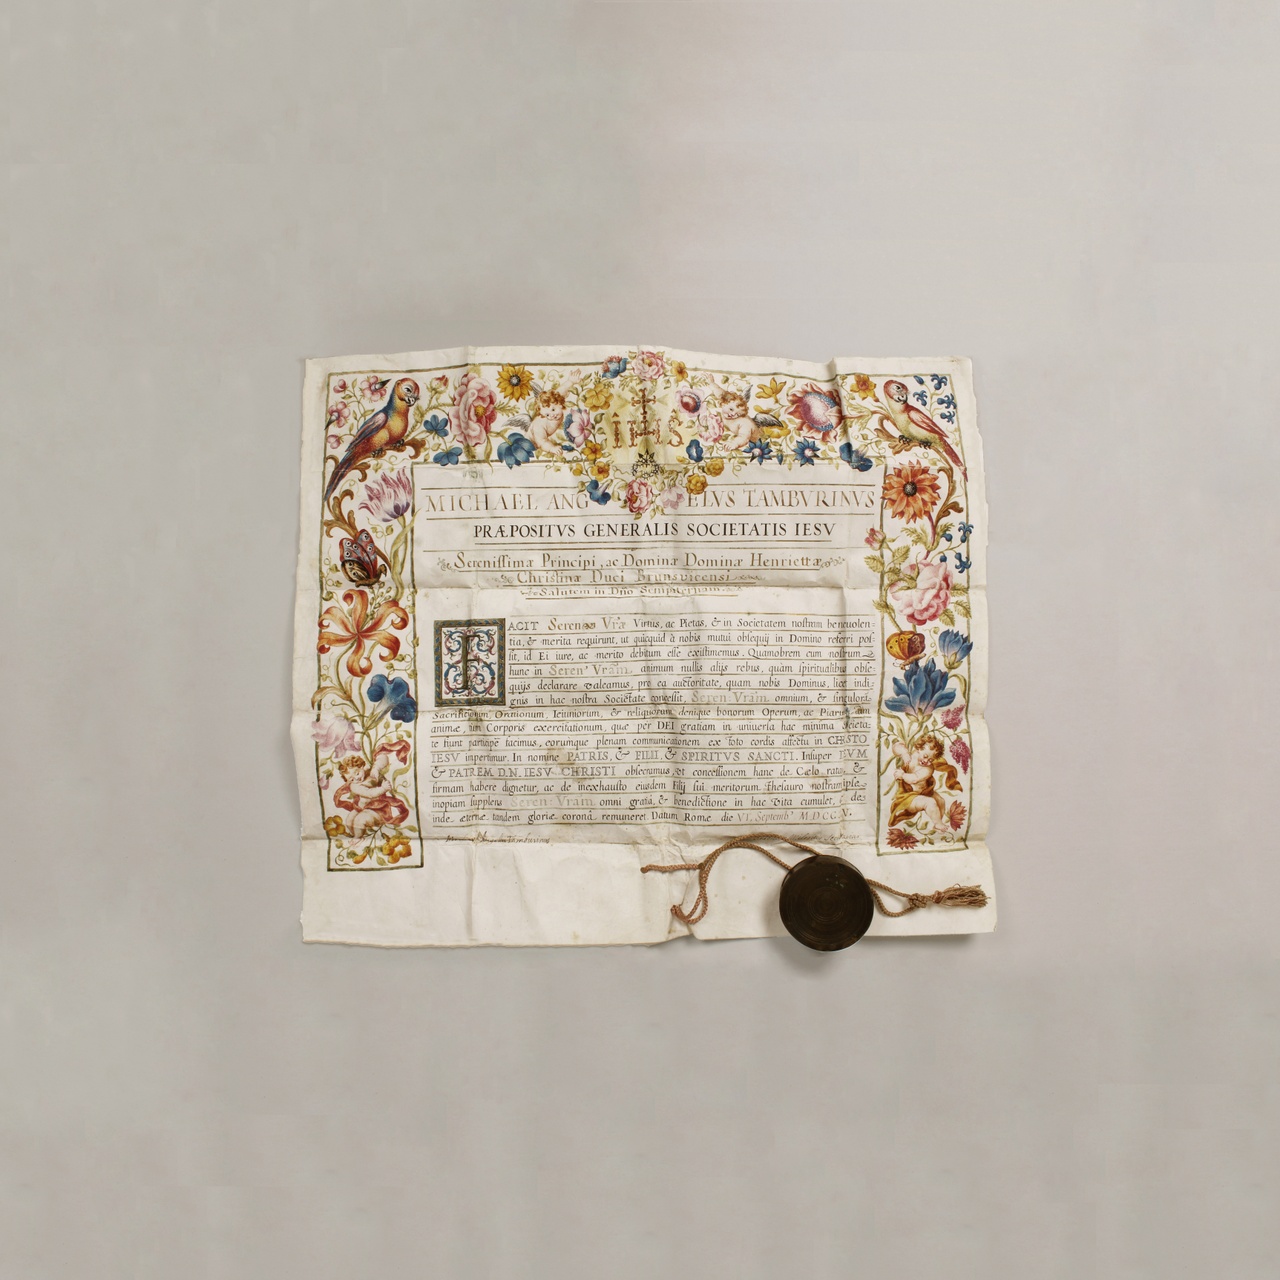 IHS
MICHAEL ANGELVS TAMBVRINVS
PRÆPOSITVS GENERALIS SOCIETATIS IESV
Serenissimæ Principi, ac Dominæ Dominæ Henriettæ
Christinæ Duci Brunsvicensi
Salutem in Dño Sempiternam.
FACIT Seren.æ Vræ Virtus, ac Pietas, & in Societatem nostram beneuolen-
tia, & merita requirunt, ut quicquid à nobis mutui obsequij in Domino referri pos-
sit, id Ei iure, ac merito debitum esse existimemus. Quamobrem cum nostrum
hunc in Seren: Vram. animum nullis alijs rebus, quàm spiritualibus obse-
quijs declarare valeamus, pro ea auctoritate, quam nobis Dominus, licet indi-
gnis in hac nostra Societate concessit, Seren: Vram omnium, & singulorũ
Sacrificiorum, Orationum, Ieiuniorum, & reliquorum denique bonorum Operum, ac Piarum tum
animæ, tum Corporis exercitationum, quæ per DEI gratiam in uniuersa hac minima Societa-
te fiunt participẽ facimus, eorumque plenam communicationem ex toto cordis affectu in CHRISTO
IESV impertimur. In nomine PATRIS, & FILII, & SPIRITVS SANCTI. Insuper DEVM
& PATREM D.N. IESV CHRISTI obsecramus, ut concessionem hanc de Cælo ratã, &
firmam habere dignetur, ac de inexhausto eiusdem Filij sui meritorum thesauro nostram ipse
inopiam supplens Seren: Vram omni gratia, & benedictione in hac vita cumulet, & de-
inde æternæ tandem gloriæ coronâ remuneret Datum Romæ die VI. Septemb: